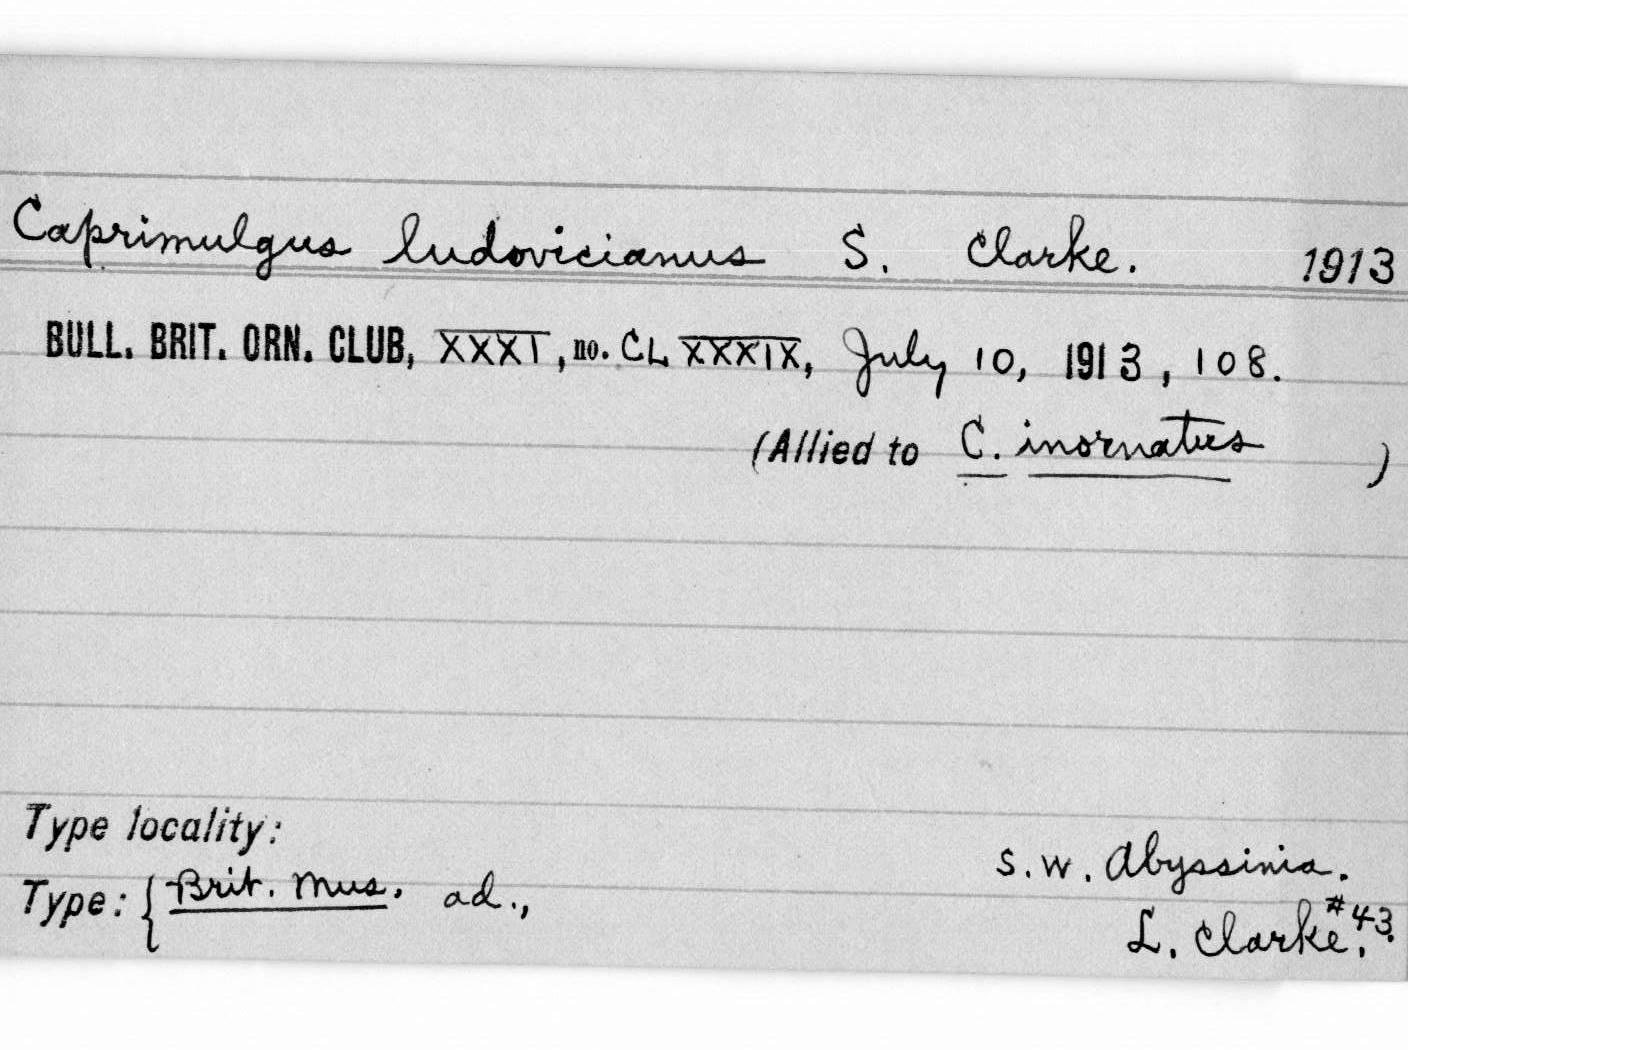 Caprimulgus ludovicianus S. Clarke. 1913
BULL. BRIT. ORN. CLUB, XXXI, no. CLXXXIX, July 10, 1913, 108.
(Allied to C. inornatus )
Type locality: S.W. Abyssinia.
Type: { Brit. Mus. ad., L. Clarke. #43.